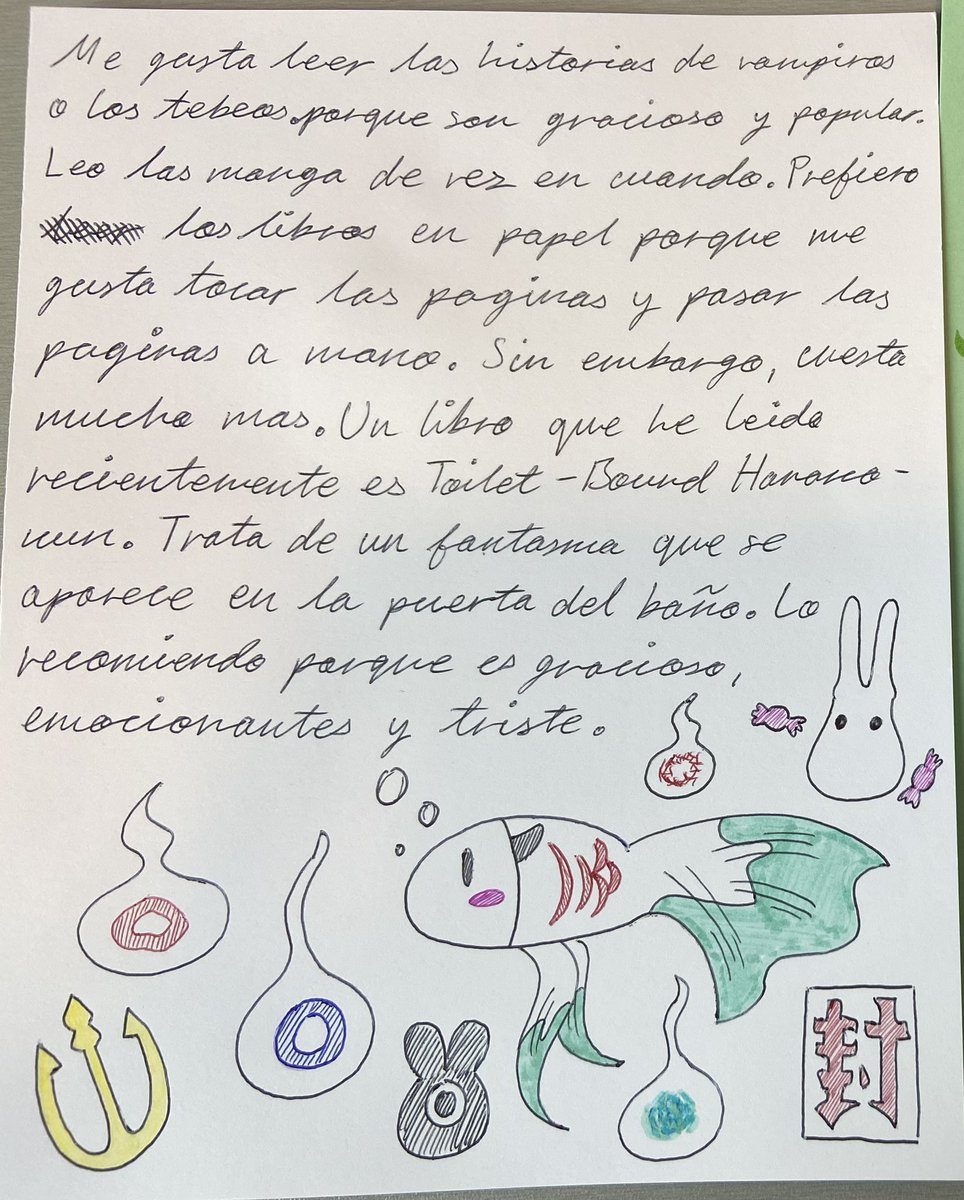 Me gusta leer las historias de vampiros
o los tebeos.porque son gracioso y popular.
Leo las manga de vez en cuando. Prefiero
los libros en papel porque me
gusta tocar las paginas y pasar las
paginas a mano. Sin embargo, cuesta
mucho mas. Un libro que he leido
recientemente es Toilet-Bound Hanano-
kun. Trata de un fantasma que se
aparece en la puerta del baño. Lo
recomiendo porque es gracioso,
emocionantes y triste.
封